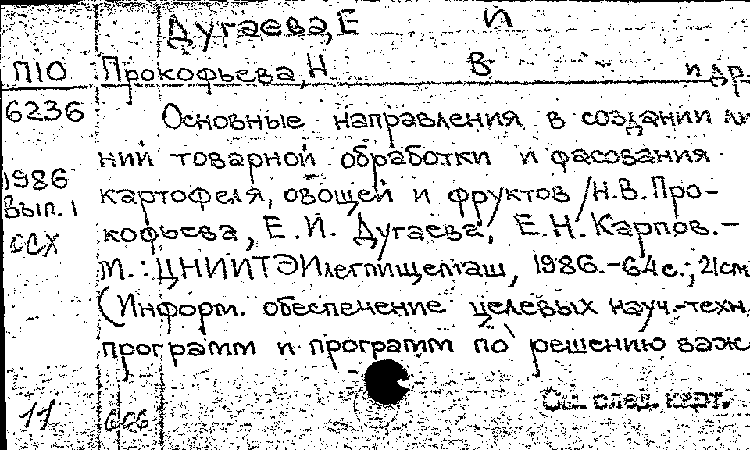 Дугаева, Е И
П10 Прокофьева, Н В и др.
6236 Основные направления в создании ли
ний товарной обработки и фасования
1986 картофеля, овощей и фруктов / Н.В. Про-
Вып. 1 кофьева, Е.И. Дугаева, Е.Н. Карпов.-
ССХ М.: ЦНИИТЭИлегпищемаш, 1986.-64с.; 21см
(Информ. обеспечение целевых науч.-техн.
программ и программ по решению важ
См. след. карт.
11 ССБ